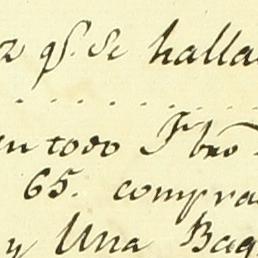 z qᵉ. Se halla
en todo
65. compra
y Una Bag